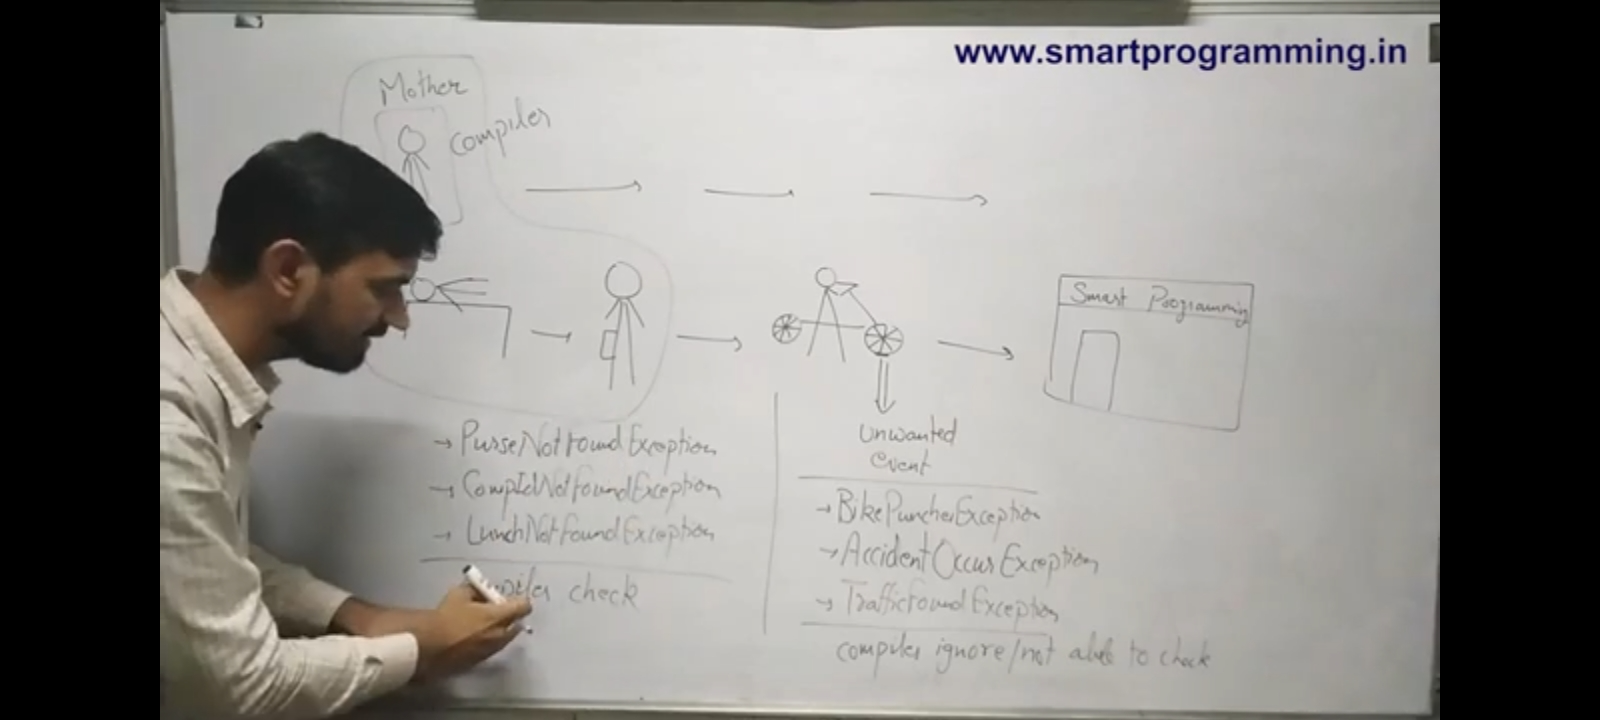 www.smartprogramming.in
Mother
compiler
Smart Programming
→ PurseNotFoundException
→ CompIdNotFoundException
→ LunchNotFoundException
check
Unwanted
event
→ BikePuncherException
→ AccidentOccursException
→ TrafficFoundException
compiler ignore/not able to check